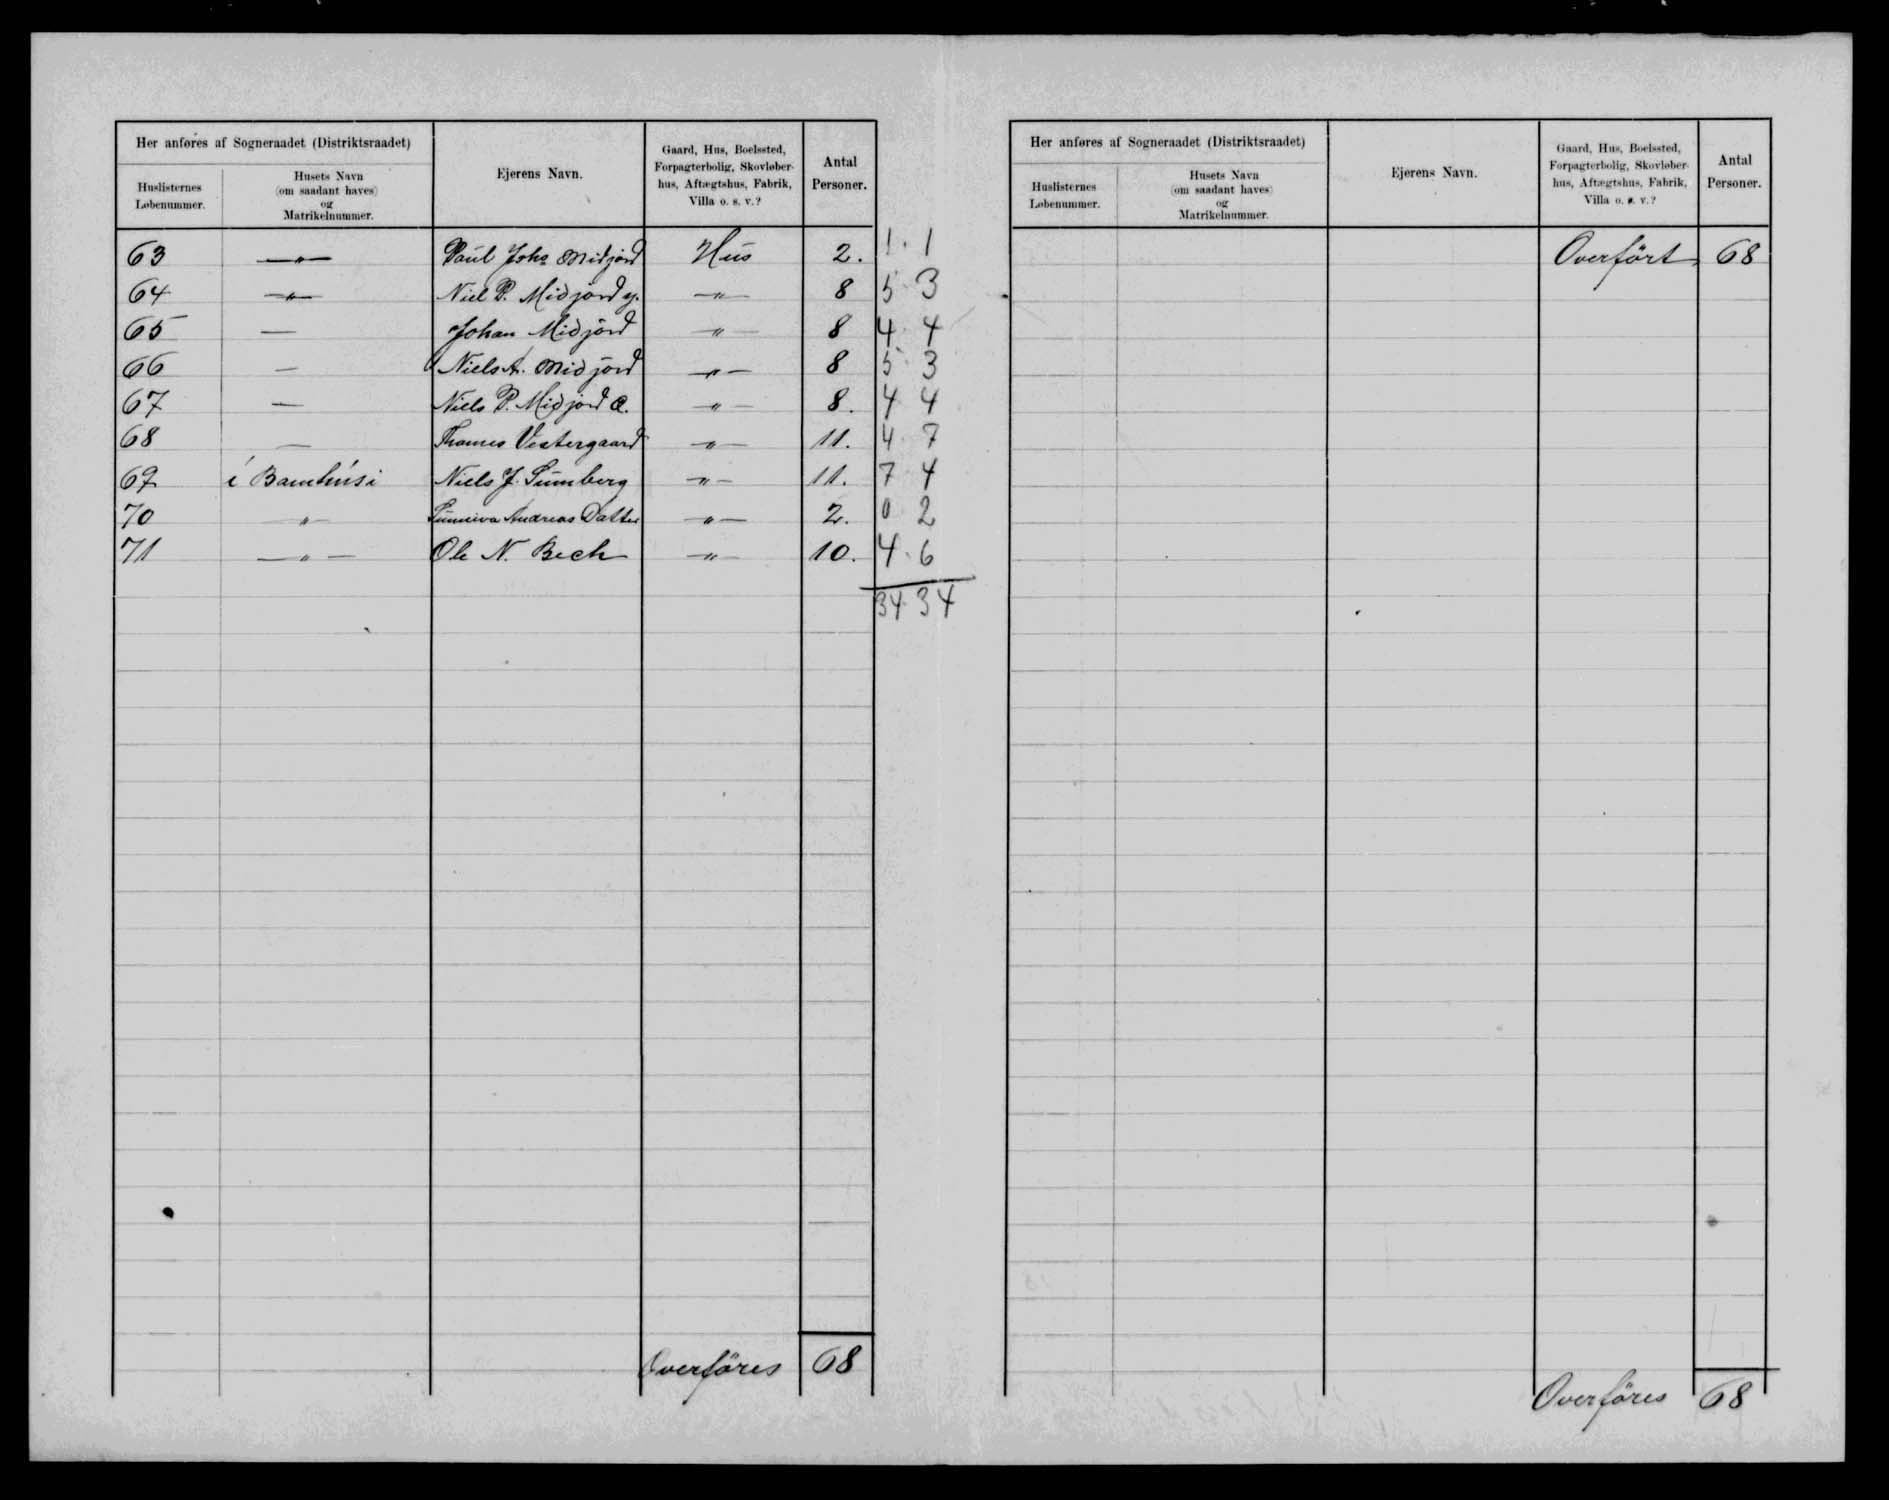 Her anføres af Sogneraadet (Distriktsraadet)
Huslisternes Løbenummer.
Husets Navn (om saadant haves) og Matrikelnummer.
Ejerens Navn.
Gaard, Hus, Boelssted, Forpagterbolig, Skovløber-hus, Aftægtshus, Fabrik, Villa o. s. v.?
Antal Personer.
63 —„— Paul Johs Midjord Hus 2. 1. 1
64 —„— Niel P. Midjord y. —„— 8 5. 3
65 — Johan Midjörd —„— 8 4 4
66 — Niels A. Midjord —„— 8 5. 3
67 — Niels P. Midjord Æ. —„— 8. 4 4
68 — Thomas Vestergaard —„— 11. 4. 7
69 í Bamhúsi Niels J. Sumberg —„— 11. 7 4
70 „— Sunniva Andreas Datter —„— 2. 0 2
71 —„— Ole N. Bech —„— 10. 4. 6
34. 34
Overföres 68
Her anføres af Sogneraadet (Distriktsraadet)
Huslisternes Løbenummer.
Husets Navn (om saadant haves) og Matrikelnummer.
Ejerens Navn.
Gaard, Hus, Boelssted, Forpagterbolig, Skovløber-hus, Aftægtshus, Fabrik, Villa o. s. v.?
Antal Personer.
Overført 68
Overföres 68